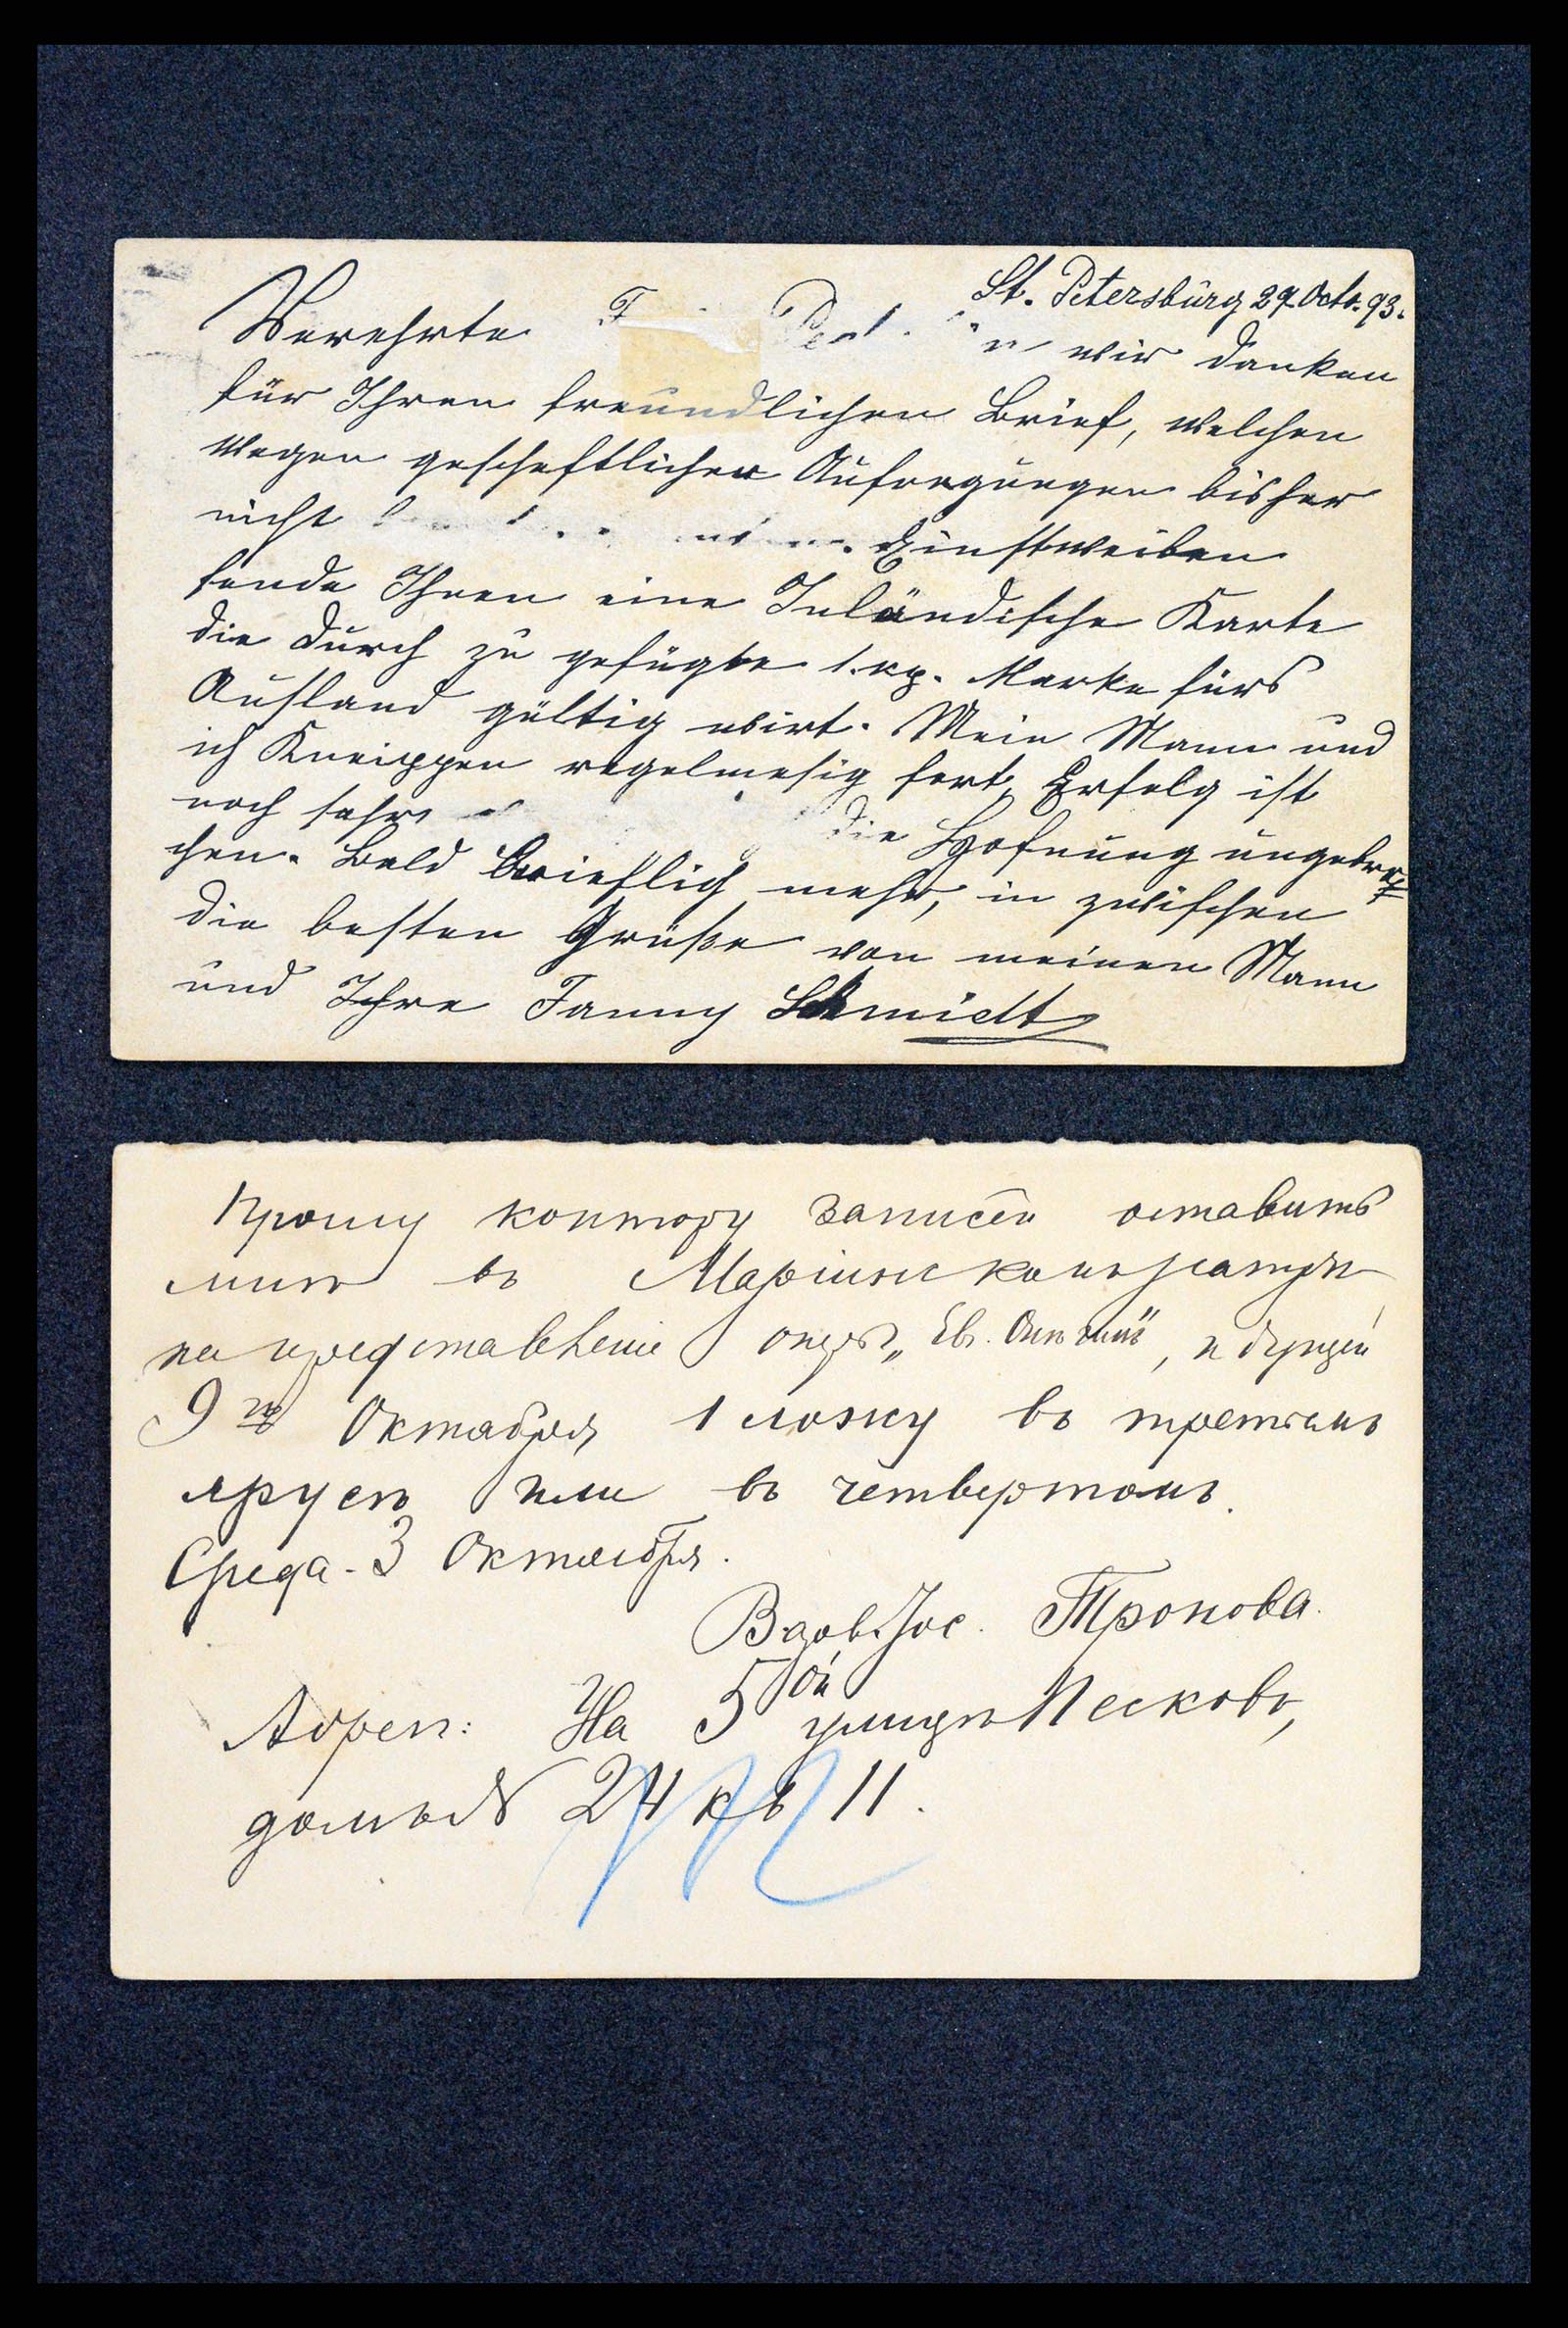 St. Petersburg 29 Octo. 93.
Verehrte wir danken
für Ihren freundlichen Brief, welchen
wegen gescheftlicher Aufregungen bisher
nicht Einstweilen
sende Ihnen eine Inländische Karte
die durch zu gefügte 1.kp. Marke fürs
Ausland gültig wirt. Mein Mann und
ich Kneippen regelmesig fort, Erfolg ist
noch sehr die Hofnung ungebro-
chen. Bald brieflich mehr, in zwischen
die besten Grüße von meinen Mann
und Ihre Fanny Schmidt
Прошу контору записей оставить
мнѣ въ Маріинскомъ театрѣ
на представленіе оперы „Евг. Онѣгинъ",
9го Октября, 1 ложу въ третьемъ
ярусѣ или въ четвертомъ.
Среда - 3 Октября.
Вдов. Тронова.
Адрес: На 5ой улицѣ Песковъ,
домъ № 24 кв 11.